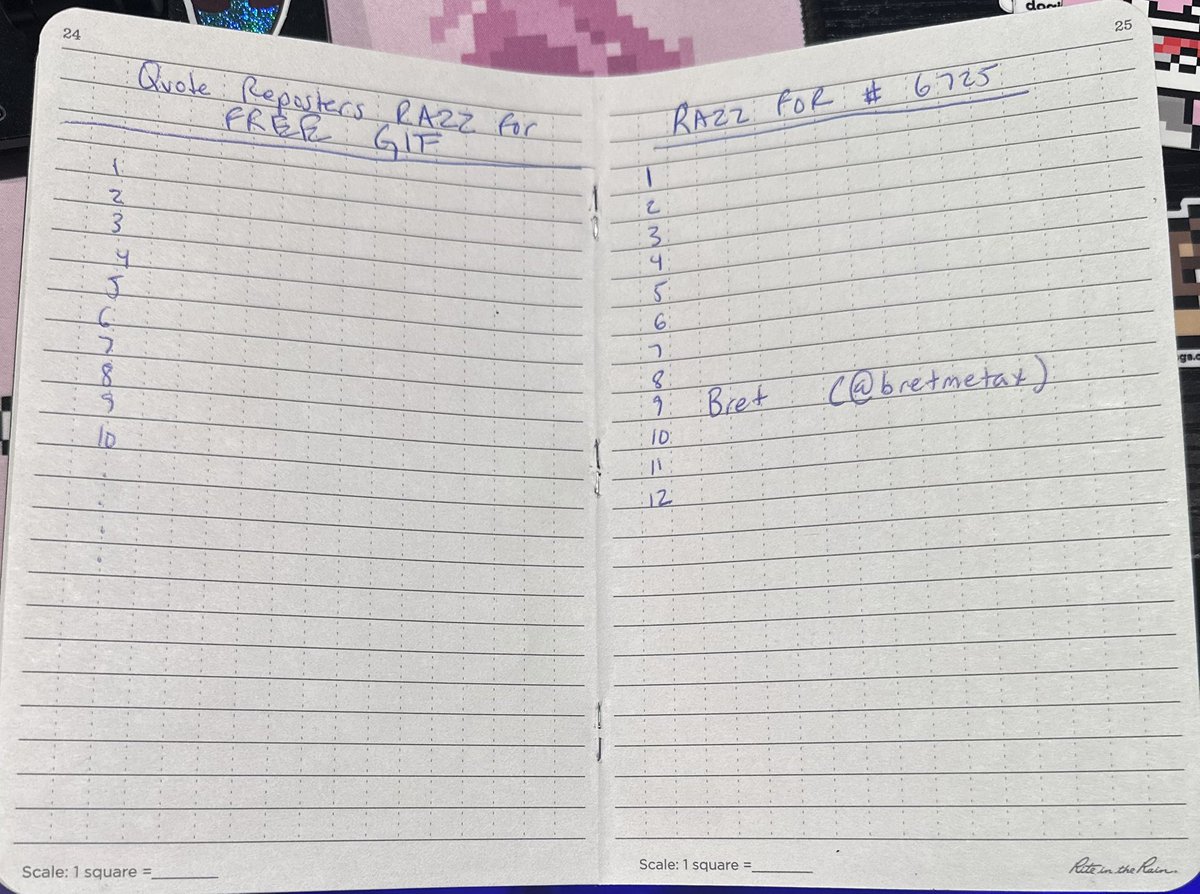 24
Quote Reposters RAZZ for
FREE GIF
1
2
3
4
5
6
7
8
9
10
.
.
.
.
Scale: 1 square =_______
25
RAZZ FOR # 6725
1
2
3
4
5
6
7
8
9 Bret (@bretmetax)
10
11
12
Scale: 1 square =_______
Rite in the Rain